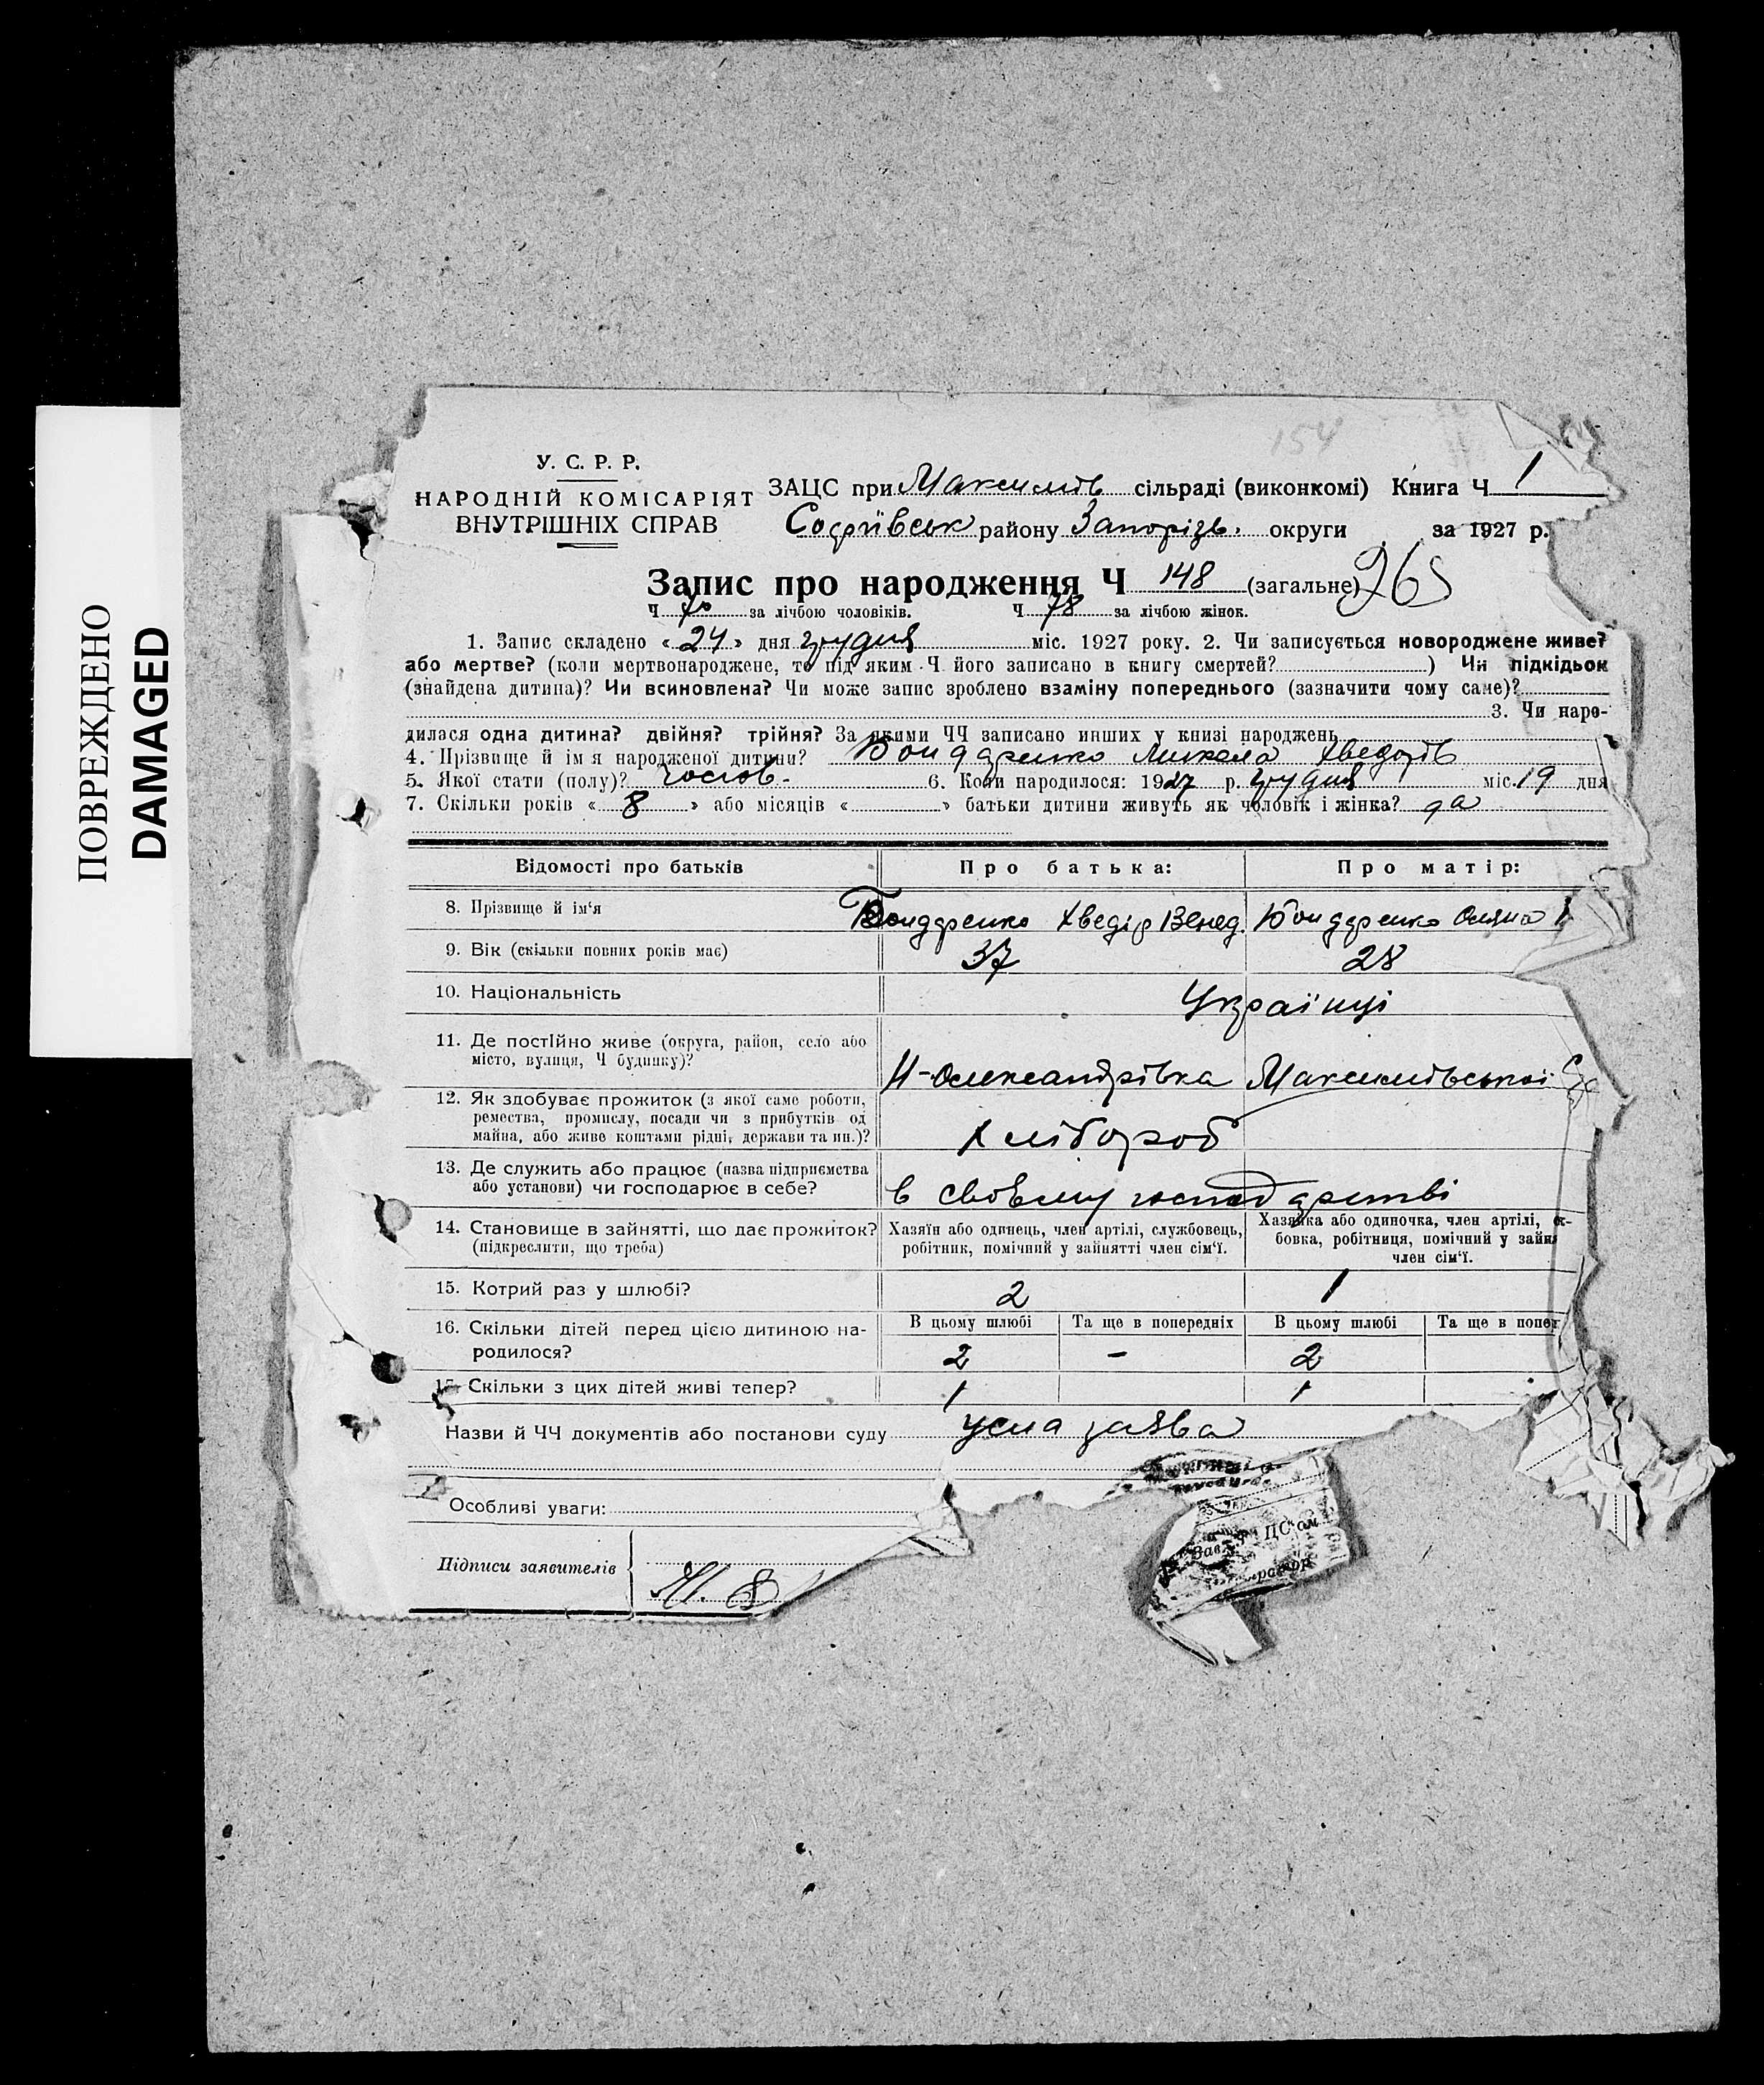 ПОВРЕЖДЕНО
DAMAGED
154
У. С. Р. Р.
НАРОДНІЙ КОМІСАРІЯТ
ВНУТРІШНІХ СПРАВ
ЗАЦС при Максимів сільраді (виконкомі) Книга Ч 1
району Запорізь. округи за 1927 р.
Запис про народження Ч 148 (загальне) 265
Ч 70 за лічбою чоловіків. Ч 78 за лічбою жінок.
1. Запис складено « 24 » дня грудня міс. 1927 року. 2. Чи записується новороджене живе?
або мертве? (коли мертвонароджене, то під яким Ч його записано в книгу смертей? ) Чи підкідьок
(знайдена дитина)? Чи всиновлена? Чи може запис зроблено взаміну попереднього (зазначити чому саме)?
3. Чи наро-
дилася одна дитина? двійня? трійня? За якими ЧЧ записано инших у книзі народжень
4. Прізвище й ім'я народженої дитини? Бондаренко Микола Хведорів
5. Якої стати (полу)? чолов. 6. Коли народилося: 1927 р. грудня міс. 19 дня
7. Скільки років « 8 » або місяців « » батьки дитини живуть як чоловік і жінка? да
Відомості про батьків Про батька: Про матір:
8. Прізвище й ім'я Бондаренко Хведір Венед. Бондаренко Оляна
9. Вік (скільки повних років має) 37 28
10. Національність Українці
11. Де постійно живе (округа, район, село або
місто, вулиця, Ч будинку)?
Н-Олександрівка Максимівської
12. Як здобуває прожиток (з якої саме роботи,
ремества, промислу, посади чи з прибутків од
майна, або живе коштами рідні, держави та ин.)?
Хлібороб
13. Де служить або працює (назва підприємства
або установи) чи господарює в себе?
в своєму господарстві
14. Становище в зайнятті, що дає прожиток?
(підкреслити, що треба)
Хазяїн або одинець, член артілі, службовець,
робітник, помічний у зайнятті член сім'ї.
Хазяйка або одиночка, член артілі,
бовка, робітниця, помічний у зайн
член сім'ї.
15. Котрий раз у шлюбі? 2 1
16. Скільки дітей перед цією дитиною на-
родилося?
В цьому шлюбі Та ще в попередніх В цьому шлюбі Та ще в попер
2 – 2
17. Скільки з цих дітей живі тепер? 1 1
Назви й ЧЧ документів або постанови суду усна заява
Особливі уваги:
Підписи заявителів
Зав. ЦС'ом